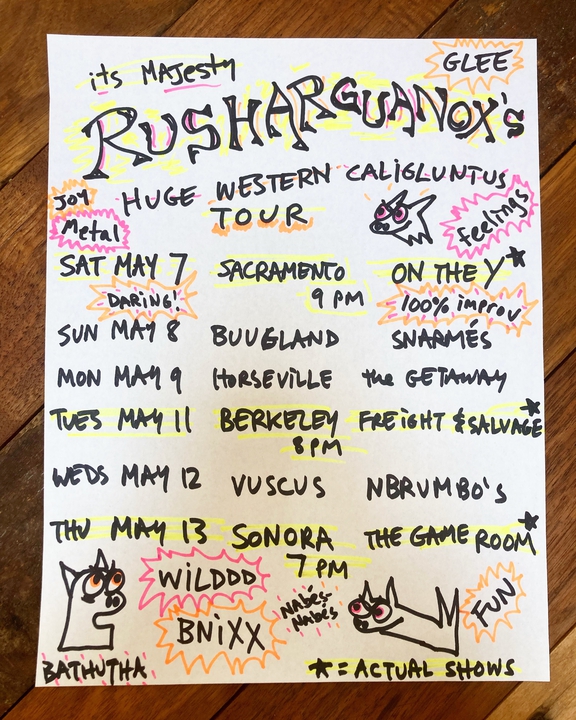 GLEE
its MAJESTY
RUSHARGUANOX's
JOY
HUGE WESTERN CALIGLUNTUS
TOUR
Metal
feelings
SAT MAY 7 SACRAMENTO ON THE Y*
9 PM
DARING!
100% improv
SUN MAY 8 BUUGLAND SNARMÉS
MON MAY 9 HORSEVILLE the GETAWAY
TUES MAY 11 BERKELEY FREIGHT & SALVAGE*
8 PM
WEDS MAY 12 VUSCUS NBRVMBO'S
THU MAY 13 SONORA THE GAME ROOM*
7 PM
WILDDD
BNIXX
NABÉS-
NABÉS
FUN
BATHUTHA
* = ACTUAL SHOWS